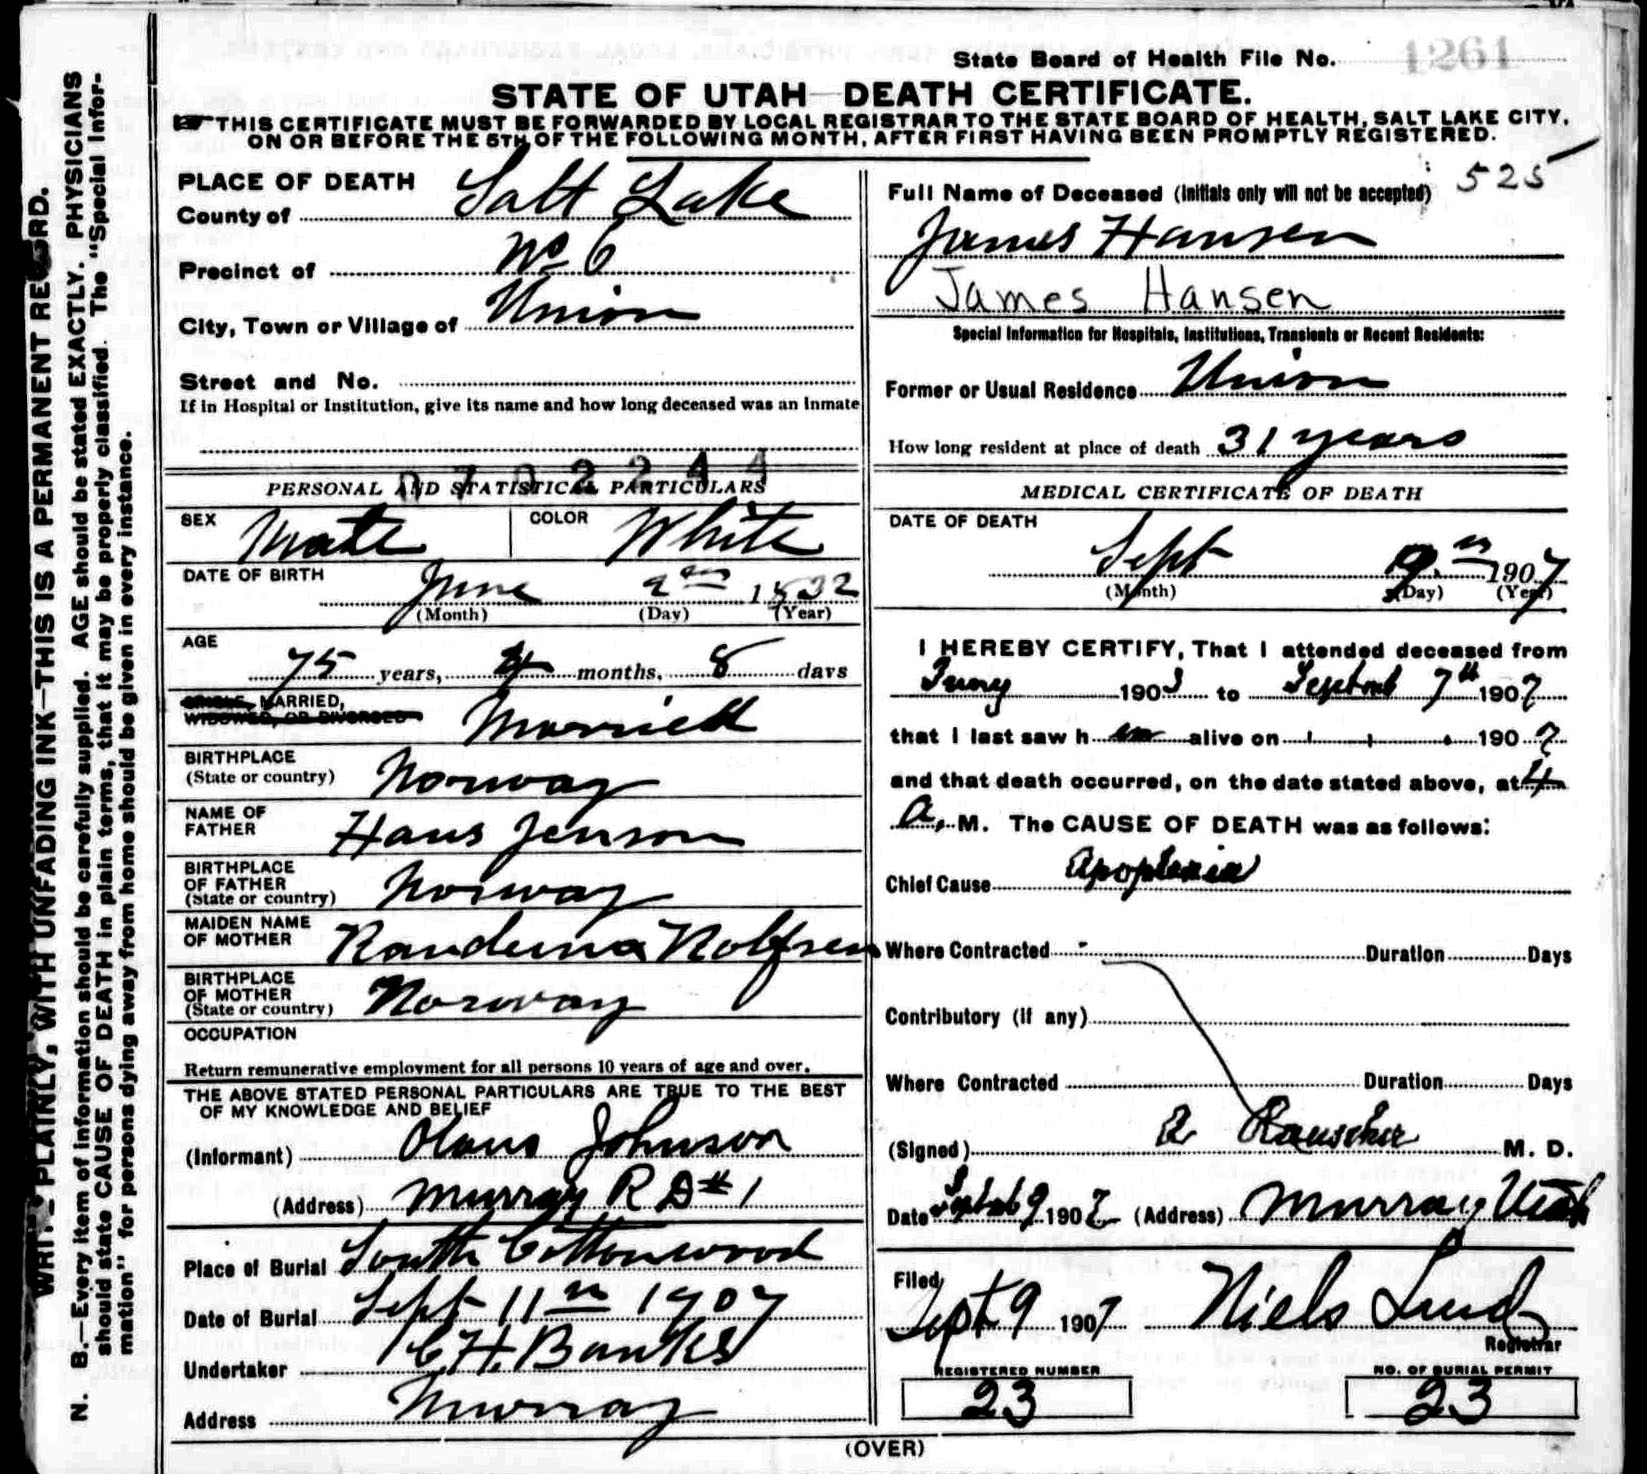 State Board of Health File No. 1261
STATE OF UTAH—DEATH CERTIFICATE.
THIS CERTIFICATE MUST BE FORWARDED BY LOCAL REGISTRAR TO THE STATE BOARD OF HEALTH, SALT LAKE CITY,
ON OR BEFORE THE 5TH OF THE FOLLOWING MONTH, AFTER FIRST HAVING BEEN PROMPTLY REGISTERED.
WRITE PLAINLY, WITH UNFADING INK—THIS IS A PERMANENT RECORD.
N. B.—Every item of information should be carefully supplied. AGE should be stated EXACTLY. PHYSICIANS
should state CAUSE OF DEATH in plain terms, that it may be properly classified. The "Special Infor-
mation" for persons dying away from home should be given in every instance.
PLACE OF DEATH
County of Salt Lake
Precinct of No 6
City, Town or Village of Union
Street and No.
If in Hospital or Institution, give its name and how long deceased was an inmate
0702244
PERSONAL AND STATISTICAL PARTICULARS
SEX Male COLOR White
DATE OF BIRTH June 2nd 1832
(Month) (Day) (Year)
AGE
75 years, months, 8 days
SINGLE, MARRIED,
WIDOWED, OR DIVORCED Married
BIRTHPLACE
(State or country) Norway
NAME OF
FATHER Hans Jenson
BIRTHPLACE
OF FATHER
(State or country) Norway
MAIDEN NAME
OF MOTHER Rolfsen
BIRTHPLACE
OF MOTHER
(State or country) Norway
OCCUPATION
Return remunerative employment for all persons 10 years of age and over.
THE ABOVE STATED PERSONAL PARTICULARS ARE TRUE TO THE BEST
OF MY KNOWLEDGE AND BELIEF
(Informant) Olaus Johnson
(Address) Murray R D # 1
Place of Burial South Cottonwood
Date of Burial Sept 11th 1907
Undertaker C. H. Banks
Address Murray
525
Full Name of Deceased (Initials only will not be accepted)
James Hansen
James Hansen
Special Information for Hospitals, Institutions, Transients or Recent Residents:
Former or Usual Residence Union
How long resident at place of death 31 years
MEDICAL CERTIFICATE OF DEATH
DATE OF DEATH
Sept 9th 1907
(Month) (Day) (Year)
I HEREBY CERTIFY, That I attended deceased from
1903 to 7th 1907
that I last saw h im alive on 1907
and that death occurred, on the date stated above, at 4
a. M. The CAUSE OF DEATH was as follows:
Chief Cause Apoplexia
Where Contracted Duration Days
Contributory (if any)
Where Contracted Duration Days
(Signed) A Rauscher M. D.
Date 9 1907 (Address) Murray Utah
Filed
Sept 9 1907 Niels Lind
Registrar
REGISTERED NUMBER
23
NO. OF BURIAL PERMIT
23
(OVER)